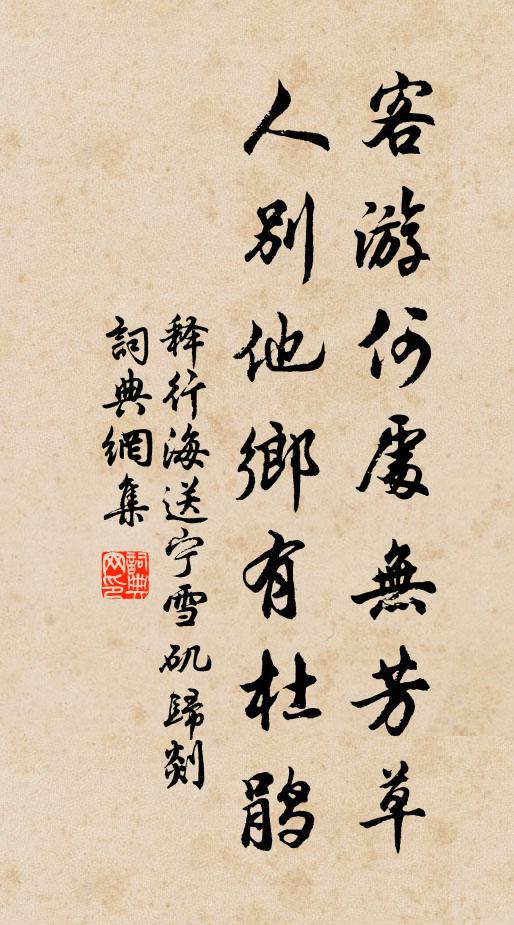 客游何處無芳草
人别他鄉有杜鹃
释行海送宁雪矶歸剡
詞典網集
詞典网印